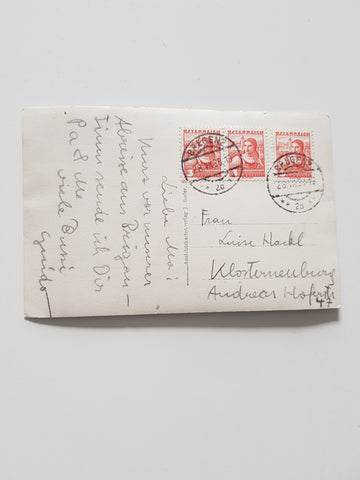 Liebe Ma!
Kurz vor unserer
Abreise aus Bregenz
sende ich Dir
Pa & Me
viele Bussi
Guido
ÖSTERREICH
ÖSTERREICH
ÖSTERREICH
BREGENZ
2a
BREGENZ
2a
Frau
Luise Hackl
Klosterneuburg
Andreas Hoferstr
47